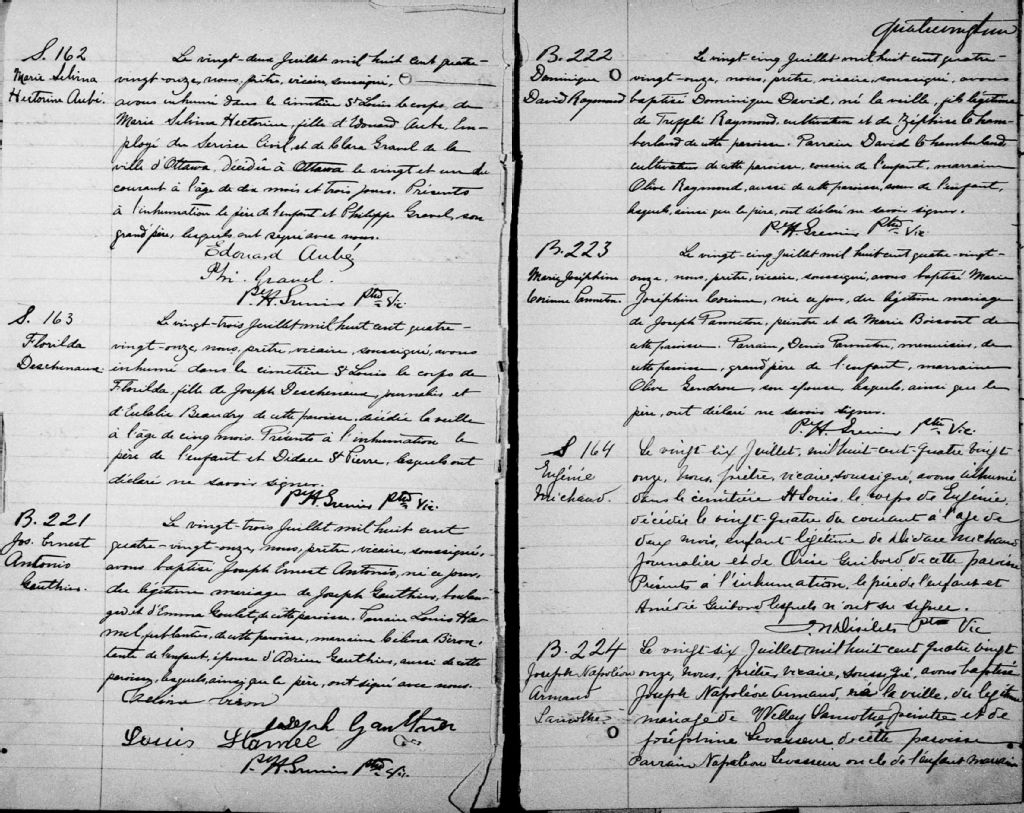 S. 162
Marie Silvina
Hectorine Aubé.
Le vingt-deux Juillet mil huit cent quatre-
vingt-onze, nous, prêtre, vicaire, soussigné,
avons inhumé dans le cimetière St Louis le corps de
Marie Silvina Hectorine, fille d'Edouard Aubé, Em-
ployé du Service Civil, et de Clara Gravel de la
ville d'Ottawa, décédée à Ottawa le vingt et un du
courant à l'âge de dix mois et trois jours. Présents
à l'inhumation le père de l'enfant et Philippe Gravel, son
grand père, lesquels ont signé avec nous.
Edouard Aubé
Phi. Gravel.
Ptre Vic.
S. 163
Florilda
Deschenaux
Le vingt-trois Juillet mil huit cent quatre-
vingt-onze, nous, prêtre, vicaire, soussigné, avons
inhumé dans le cimetière St Louis le corps de
Florilda, fille de Joseph Deschenaux, journalier et
d'Eulalie Beaudry de cette paroisse, décédée la veille
à l'âge de cinq mois. Présents à l'inhumation le
père de l'enfant et Didace St Pierre, lesquels ont
déclaré ne savoir signer.
Ptre Vic.
B. 221
Jos. Ernest
Antonio
Gauthier.
Le vingt-trois Juillet mil huit cent
quatre-vingt-onze, nous, prêtre, vicaire, soussigné,
avons baptisé Joseph Ernest Antonio, né ce jour,
du légitime mariage de Joseph Gauthier, boulan-
ger et d'Emma Goulet, de cette paroisse. Parrain Louis Ha-
mel, ferblantier, de cette paroisse, marraine Célina Biron,
tante de l'enfant, épouse d'Adrien Gauthier, aussi de cette
paroisse, lesquels, ainsi que le père, ont signé avec nous.
Biron
Joseph Gauthier
Louis Hamel
Ptre Vic.
B. 222
Dominique
David Raymond
Le vingt cinq Juillet mil huit cent quatre-
vingt-onze, nous, prêtre, vicaire, soussigné, avons
baptisé Dominique David, né la veille, fils légitime
de Trefflé Raymond, cultivateur et de Zéphise Cham-
berland de cette paroisse. Parrain David Chamberland
cultivateur de cette paroisse, cousin de l'enfant, marraine
Olive Raymond, aussi de cette paroisse, soeur de l'enfant,
lesquels, ainsi que le père, ont déclaré ne savoir signer.
Ptre Vic
B. 223
Marie Joséphine
Corinne Panneton.
Le vingt-cinq Juillet mil huit cent quatre-vingt-
onze, nous, prêtre, vicaire, soussigné, avons baptisé Marie
Joséphine Corinne, née ce jour, du légitime mariage
de Joseph Panneton, peintre et de Marie Boisvert de
cette paroisse. Parrain, Denis Panneton, menuisier, de
cette paroisse, grand père de l'enfant, marraine
Olive Gendron, son épouse, lesquels, ainsi que le
père, ont déclaré ne savoir signer.
Ptre Vic.
S 164
Eugénie
Michaud.
Le vingt six Juillet, mil huit-cent-Quatre vingt
onze, Nous, prêtre, vicaire, soussigné, avons inhumé
dans le cimetière St Louis, le corps de Eugénie
décédée le vingt-quatre du courant à l'âge de
deux mois, enfant légitime de Didace Michaud
Journalier et de Guibord de cette paroisse
Présents à l'inhumation, le père de l'enfant et
Amédée Guibord lesquels n'ont su signer.
Ptre Vic
B. 224
Joseph Napoléon
Armand
Lamothe
Le vingt-six Juillet mil huit cent Quatre vingt
onze, Nous, prêtre, vicaire, soussigné, avons baptisé
Joseph Napoléon Armand, né la veille, du légitime
mariage de Willey Lamothe peintre et de
Joséphine Levasseur de cette paroisse
Parrain Napoléon Levasseur oncle de l'enfant marraine